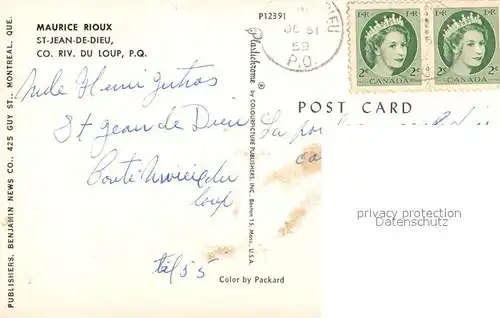 MAURICE RIOUX
ST-JEAN-DE-DIEU,
CO. RIV. DU LOUP, P.Q.
P12391
59
P.O.
E R
2¢ 2¢
CANADA
E R
2¢ 2¢
CANADA
POST CARD
Henri
St Jean de Dieu
Comté
du
loup
tél 55
La
privacy protection
Datenschutz
Color by Packard
Plastichrome ® by COLOURPICTURE PUBLISHERS, INC., Boston 15, Mass., U.S.A.
PUBLISHERS, BENJAMIN NEWS CO., 425 GUY ST., MONTREAL, QUE.